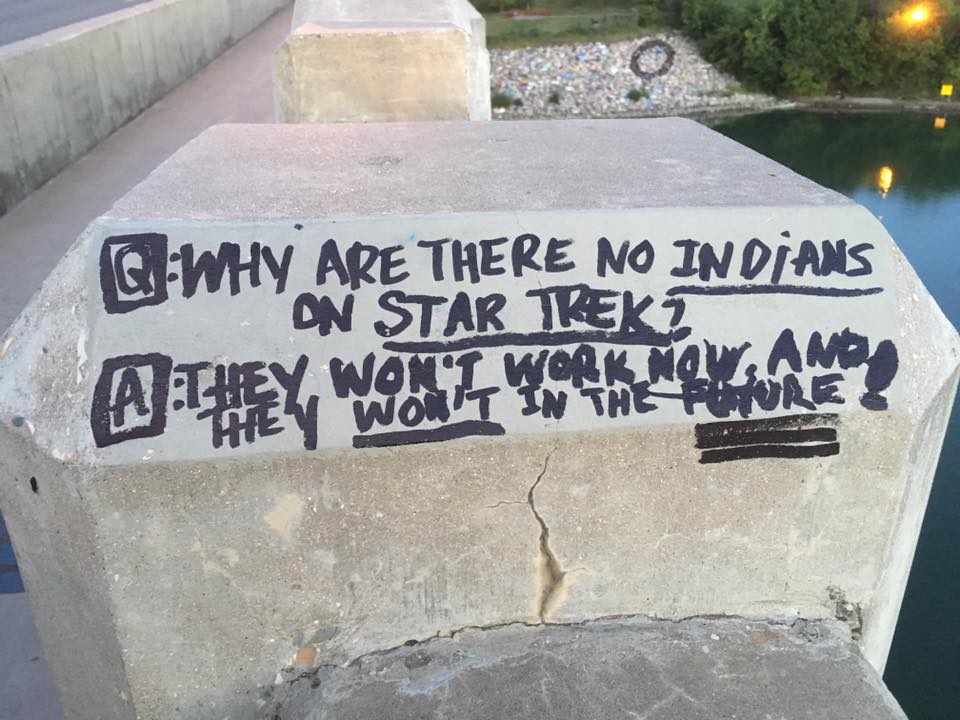 Q:WHY ARE THERE NO INDiANS
ON STAR TREK?
A:THEY WON'T WORK NOW, AND
THEY WON'T IN THE FUTURE!